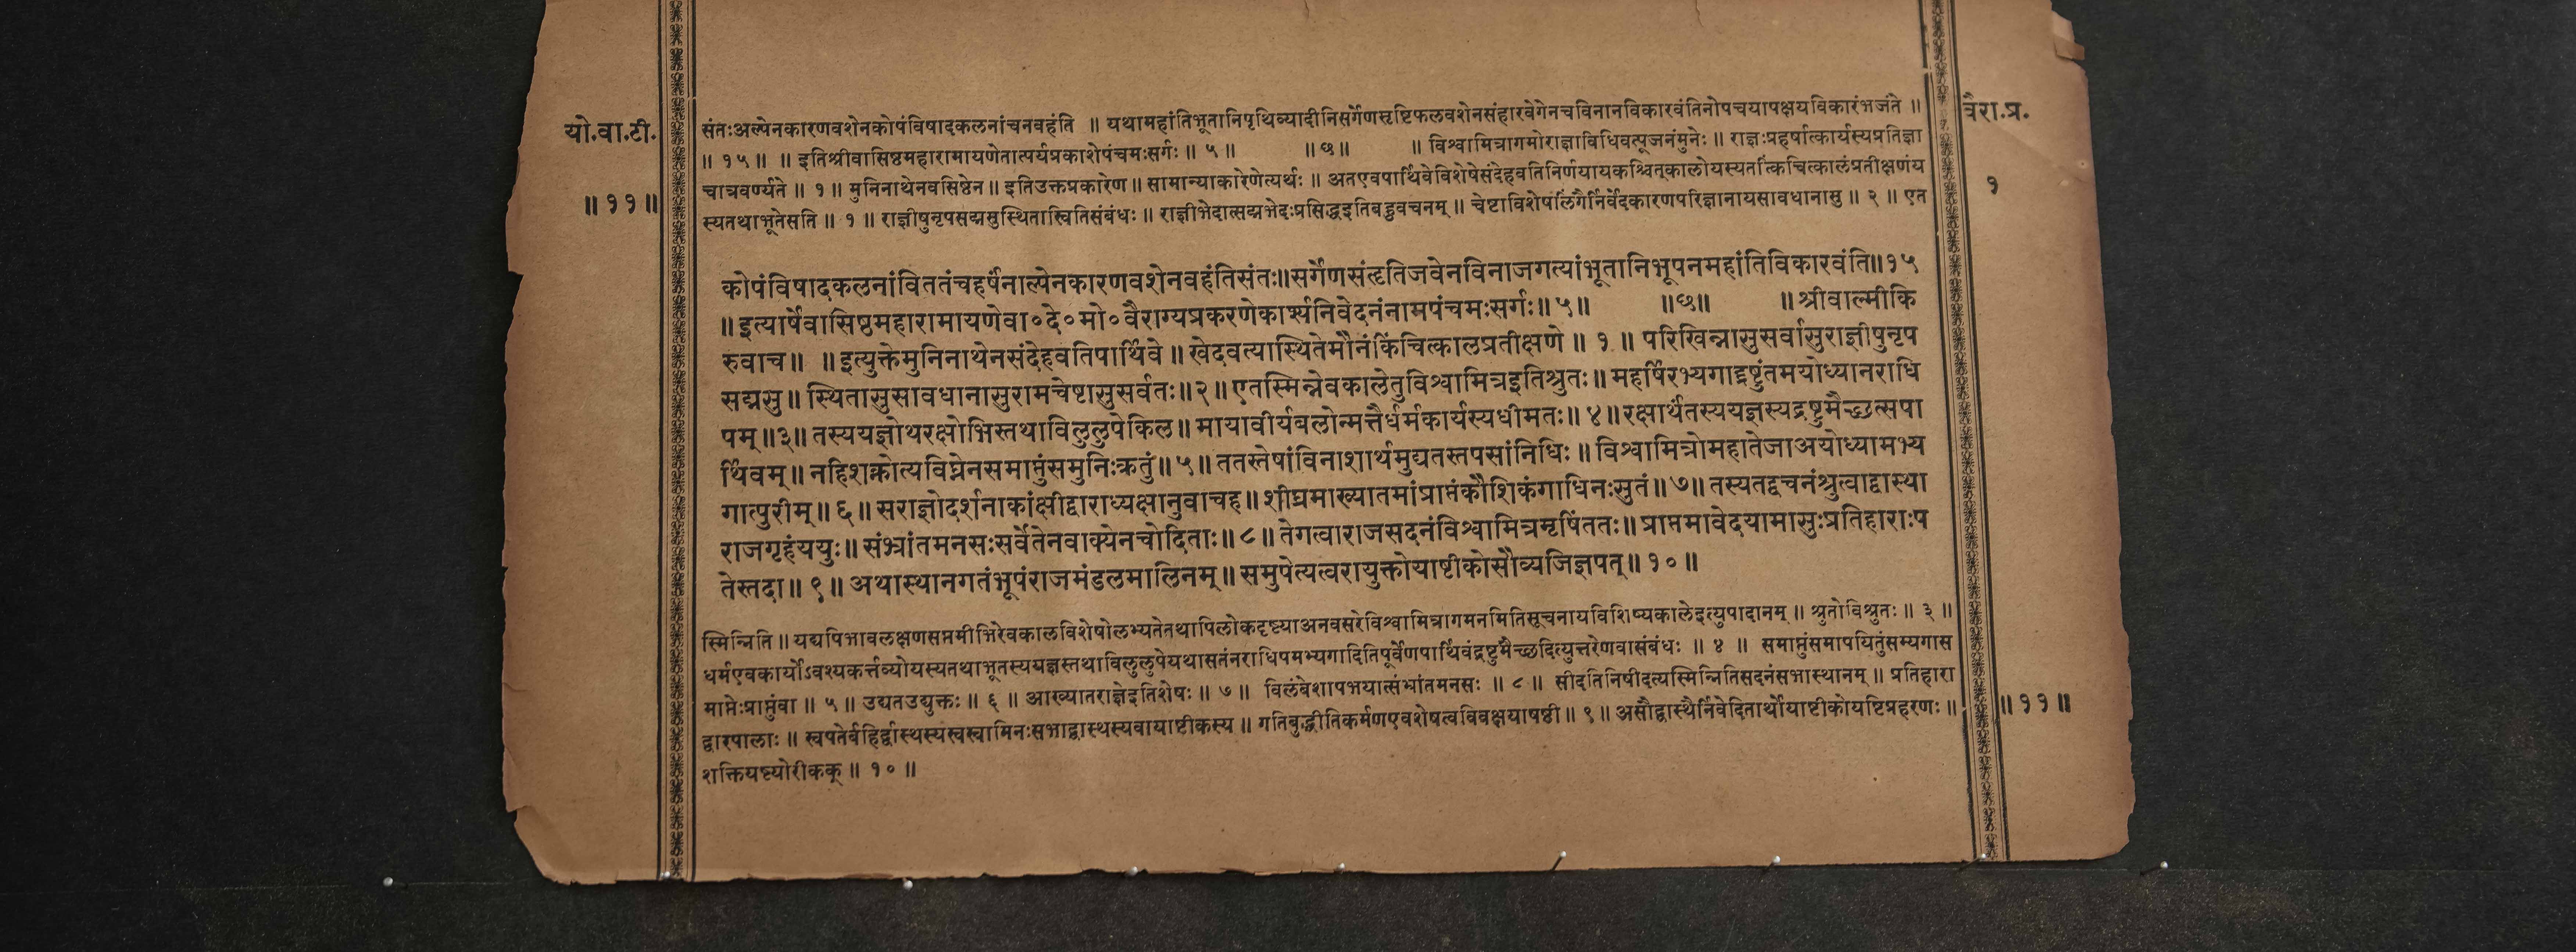 यो.वा.टी.
॥ ११ ॥
वैरा.प्र.
१
संतःअल्पेनकारणवशेनकोपंविषादकलनांचनवहंति ॥ यथामहांतिभूतानिपृथिव्यादीनिसर्गेणसृष्टिफलवशेनसंहारवेगेनचविनानविकारवंतिनोपचयापक्षयविकारंभजंते ॥
॥ १५ ॥ ॥ इतिश्रीवासिष्ठमहारामायणेतात्पर्यप्रकाशेपंचमःसर्गः ॥ ५ ॥ ॥ छ ॥ ॥ विश्वामित्रागमोराज्ञाविधिवत्पूजनंमुनेः ॥ राज्ञःप्रहर्षात्कार्यस्यप्रतिज्ञा
चात्रवर्ण्यते ॥ १ ॥ मुनिनाथेनवसिष्ठेन ॥ इतिउक्तप्रकारेण ॥ सामान्याकारेणेत्यर्थः ॥ अतएवपार्थिवेविशेषेसंदेहवतिनिर्णयायकश्चित्कालोयस्यतत्किंचित्कालंप्रतीक्षणंय
स्यतथाभूतेसति ॥ १ ॥ राज्ञीषुनृपसद्मसुस्थितास्वितिसंबंधः ॥ राज्ञीभेदात्सद्मभेदःप्रसिद्धइतिबहुवचनम् ॥ चेष्टाविशेषलिंगैर्निर्वेदकारणपरिज्ञानायसावधानासु ॥ २ ॥ एत
कोपंविषादकलनांविततंचहर्षंनाल्पेनकारणवशेनवहंतिसंतः॥सर्गेणसंहृतिजवेनविनाजगत्यांभूतानिभूपनमहांतिविकारवंति॥१५
॥ इत्यार्षेवासिष्ठमहारामायणेवा०दे०मो०वैराग्यप्रकरणेकार्श्यनिवेदनंनामपंचमःसर्गः॥ ५॥ ॥छ॥ ॥ श्रीवाल्मीकि
रुवाच॥ ॥ इत्युक्तेमुनिनाथेनसंदेहवतिपार्थिवे ॥ खेदवत्यास्थितेमौनंकिंचित्कालप्रतीक्षणे ॥ १ ॥ परिखिन्नासुसर्वासुराज्ञीषुनृप
सद्मसु॥ स्थितासुसावधानासुरामचेष्टासुसर्वतः॥२॥ एतस्मिन्नेवकालेतुविश्वामित्रइतिश्रुतः॥ महर्षिरभ्यगाद्द्रष्टुंतमयोध्यानराधि
पम्॥३॥ तस्ययज्ञोथरक्षोभिस्तथाविलुलुपेकिल॥ मायावीर्यबलोन्मत्तैर्धर्मकार्यस्यधीमतः॥ ४॥ रक्षार्थंतस्ययज्ञस्यद्रष्टुमैच्छत्सपा
र्थिवम्॥ नहिशक्नोत्यविघ्नेनसमाप्तुंसमुनिःक्रतुं॥ ५॥ ततस्तेषांविनाशार्थमुद्यतस्तपसांनिधिः॥ विश्वामित्रोमहातेजाअयोध्यामभ्य
गात्पुरीम्॥ ६॥ सराज्ञोदर्शनाकांक्षीद्वाराध्यक्षानुवाचह॥ शीघ्रमाख्यातमांप्राप्तंकौशिकंगाधिनःसुतं॥ ७॥ तस्यतद्वचनंश्रुत्वाद्वास्था
राजगृहंययुः॥ संभ्रांतमनसःसर्वेतेनवाक्येनचोदिताः॥ ८॥ तेगत्वाराजसदनंविश्वामित्रमृषिंततः॥ प्राप्तमावेदयामासुःप्रतिहाराःप
तेस्तदा॥ ९॥ अथास्थानगतंभूपंराजमंडलमालिनम्॥ समुपेत्यत्वरायुक्तोयाष्टीकोसौव्यजिज्ञपत्॥ १०॥
स्मिन्निति॥ यद्यपिभावलक्षणसप्तमीभिरेवकालविशेषोलभ्यतेतथापिलोकदृष्ट्याअनवसरेविश्वामित्रागमनमितिसूचनायविशिष्यकालेइत्युपादानम् ॥ श्रुतोविश्रुतः ॥ ३ ॥
धर्मएवकार्योऽवश्यकर्त्तव्योयस्यतथाभूतस्ययज्ञस्तथाविलुलुपेयथासतंनराधिपमभ्यगादितिपूर्वेणपार्थिवंद्रष्टुमैच्छदित्युत्तरेणवासंबंधः ॥ ४ ॥ समाप्तुंसमापयितुंसम्यगास
माप्तेःप्राप्तुंवा ॥ ५ ॥ उद्यतउद्युक्तः ॥ ६ ॥ आख्यातराज्ञेइतिशेषः ॥ ७ ॥ विलंबेशापभयात्संभ्रांतमनसः ॥ ८ ॥ सीदतिनिषीदत्यस्मिन्नितिसदनंसभास्थानम् ॥ प्रतिहारा
द्वारपालाः ॥ स्वपतेर्बहिर्द्वास्थस्यस्वस्वामिनःसभाद्वास्थस्यवायाष्टीकस्य ॥ गतिबुद्धीतिकर्मणएवशेषत्वविवक्षयाषष्ठी ॥ ९ ॥ असौद्वास्थैर्निवेदितार्थोयाष्टीकोयष्टिप्रहरणः ॥
शक्तियष्ट्योरीकक् ॥ १० ॥
॥ ११ ॥